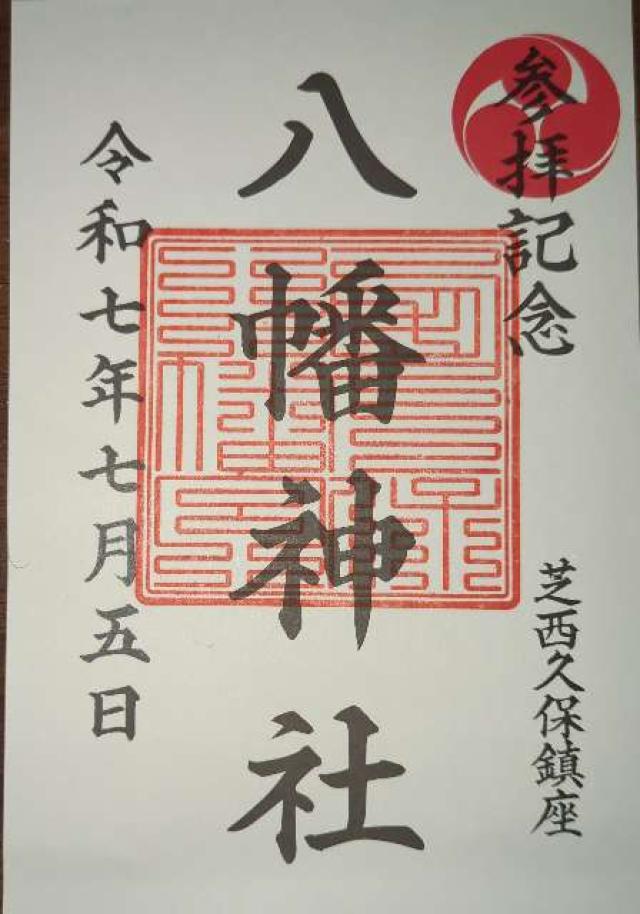 参拝記念
芝西久保鎮座
八幡神社
令和七年七月五日